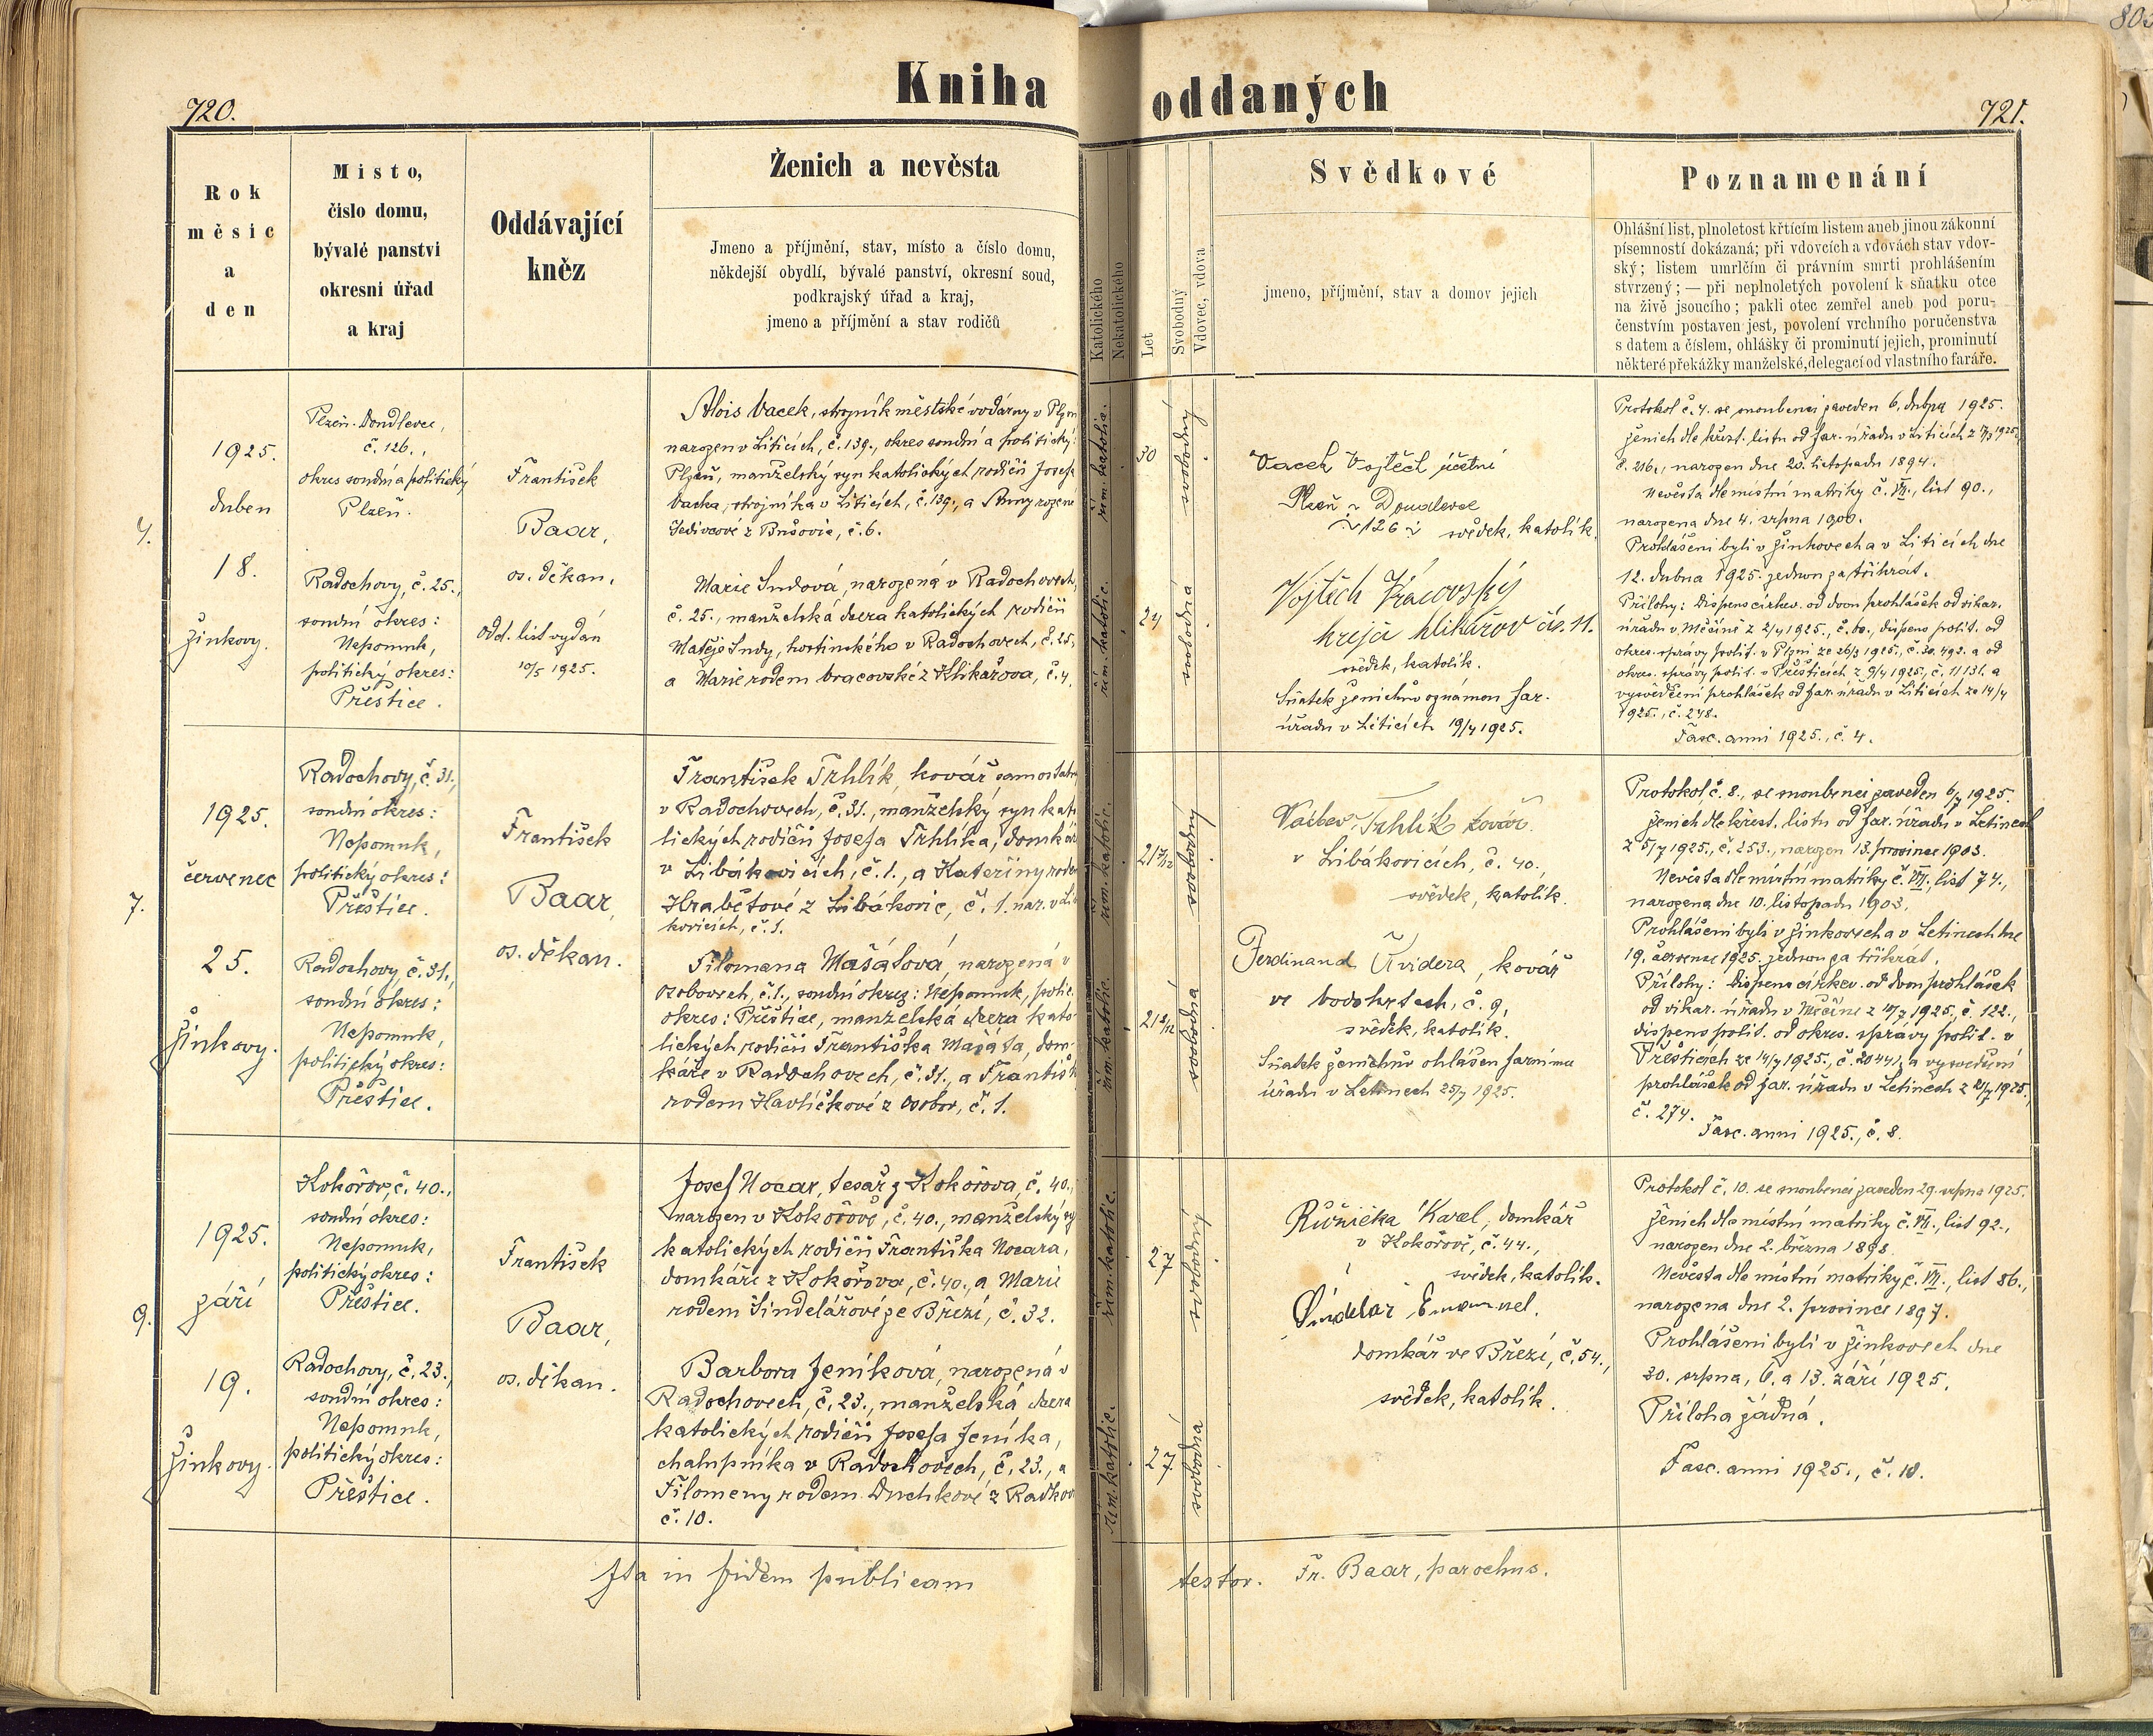 803
Kniha oddaných
720.
721.
Rok
měsíc
a
den
Místo,
čislo domu,
bývalé panstvi
okresni úřad
a kraj
Oddávající
kněz
Ženich a nevěsta
Jmeno a příjmění, stav, místo a číslo domu,
někdejší obydlí, bývalé panství, okresní soud,
podkrajský úřad a kraj,
jmeno a příjmění a stav rodičů
Katolického
Nekatolického
Let
Svobodný
Vdovec, vdova
Svědkové
jmeno, příjmění, stav a domov jejich
Poznamenání
Ohlášní list, plnoletost křtícím listem aneb jinou zákonní
písemností dokázaná; při vdovcích a vdovách stav vdov-
ský; listem umrlčím či právním smrti prohlášením
stvrzený; — při neplnoletých povolení k sňatku otce
na živě jsoucího; pakli otec zemřel aneb pod poru-
čenstvím postaven jest, povolení vrchního poručenstva
s datem a číslem, ohlášky či prominutí jejich, prominutí
některé překážky manželské, delegací od vlastního faráře.
4.
1925.
duben
18.
Žinkovy.
Plzeň-Doudlevce,
č. 126.,
okres soudní a politický
Plzeň.
Radochovy, č. 25.,
soudní okres:
Nepomuk,
politický okres:
Přeštice.
František
Baar,
os. děkan.
Odd. list vydán
10/5 1925.
Alois Vacek, strojník městské vodárny v Plzni
narozen v Liticích, č. 139., okres soudní a politický:
Plzeň, manželský syn katolických rodičů Josefa
Vacka, strojníka v Liticích, č. 139., a Anny rozené
Šedivcové z , č. 6.
Marie Sudová, narozená v Radochovech,
č. 25., manželská dcera katolických rodičů
Matěje Sudy, hostinského v Radochovech, č. 25.,
a Marie rodem Vracovské z Klikařova, č. 4.
řím. katolic.
30
svobodný
řím. katolic.
24
svobodná
Vacek Vojtěch účetní
Plzeň - Doudlevce
126 svědek, katolík.
Vojtěch Vracovský
krejčí Klikařov čís. 11.
svědek, katolík.
Sňatek ženichův oznámen far.
úřadu v Liticích 19/4 1925.
Protokol č. 4. se snoubenci zaveden 6. dubna 1925.
Ženich dle křest. listu od far. úřadu v Liticích z 17/3 1925,
č. 216., narozen dne 20. listopadu 1894.
Nevěsta dle místní matriky č. VII., list 90.,
narozena dne 4. srpna 1900.
Prohlášeni byli v Žinkovech a v Liticích dne
12. dubna 1925. jednou za třikrát.
Přílohy: Dispens církev. od dvou prohlášek od vikar.
úřadu v Měčíně z 2/4 1925., č. 60., dispens polit. od
okres. správy polit. v Plzni ze 26/3 1925., č. 30.493. a od
okres. správy polit. v Přešticích z 9/4 1925., č. 11131. a
vysvědčení prohlášek od far. úřadu v Liticích ze 14/4
1925., č. 248.
Fasc. anni 1925., č. 4.
7.
1925.
červenec
25.
Žinkovy.
Radochovy, č. 31.,
soudní okres:
Nepomuk,
politický okres:
Přeštice.
Radochovy, č. 31.,
soudní okres:
Nepomuk,
politický okres:
Přeštice.
František
Baar,
os. děkan.
František Trhlík, kovář samostatný
v Radochovech, č. 31., manželský syn kato-
lických rodičů Josefa Trhlíka, domkáře
v Libákovicích, č. 1., a Kateřiny rodem
Hrabětové z Libákovic, č. 1. nar. v Libá-
kovicích, č. 1.
Filomena Mašátová, narozená v
Osobovech, č. 1., soudní okres: Nepomuk, polit.
okres: Přeštice, manželská dcera kato-
lických rodičů Františka Mašáta, dom-
káře v Radochovech, č. 31., a Františky
rodem Havlíčkové z Osobov, č. 1.
řím. katolic.
svobodný
řím. katolic.
svobodná
Václav Trhlík kovář
v Libákovicích, č. 40.,
svědek, katolík.
Ferdinand Kvidera, kovář
ve Vodokrtech, č. 9,
svědek, katolík.
Sňatek ženichův ohlášen farnímu
úřadu v Letinech 25/7 1925.
Protokol č. 8., se snoubenci zaveden 6/7 1925.
Ženich dle křest. listu od far. úřadu v Letinech
z 5/7 1925., č. 253., narozen 13. prosince 1903.
Nevěsta dle místní matriky č. VII., list 74.,
narozena dne 10. listopadu 1903.
Prohlášeni byli v Žinkovech a v Letinech dne
19. července 1925. jednou za třikrát.
Přílohy: Dispens církev. od dvou prohlášek
od vikar. úřadu v Měčíně z 10/7 1925., č. 122.,
dispens polit. od okres. správy polit. v
Přešticích ze 14/7 1925., č. 20441, a vysvědčení
prohlášek od far. úřadu v Letinech z 21/7 1925.,
č. 274.
Fasc. anni 1925., č. 8.
9.
1925.
září
19.
Žinkovy.
Kokořov, č. 40.,
soudní okres:
Nepomuk,
politický okres:
Přeštice.
Radochovy, č. 23.,
soudní okres:
Nepomuk,
politický okres:
Přeštice.
František
Baar,
os. děkan.
Josef Nocar, tesař z Kokořova, č. 40.,
narozen v Kokořově, č. 40., manželský sy
katolických rodičů Františka Nocara,
domkáře z Kokořova, č. 40., a Marie
rodem Šindelářové ze Březí, č. 32.
Barbora Jeníková, narozená v
Radochovech, č. 23., manželská dcera
katolických rodičů Josefa Jeníka,
chalupníka v Radochovech, č. 23., a
Filomeny rodem Duchkové z Radkov
č. 10.
řím. katolic.
27
svobodný
řím. katolic.
27.
svobodná
Růžička Karel, domkář
v Kokořově, č. 44.,
svědek, katolík.
Šindelář Emanuel.
domkář ve Březí, č. 54.,
svědek, katolík.
Protokol č. 10. se snoubenci zaveden 29. srpna 1925.
Ženich dle místní matriky č. VII., list 92.,
narozen dne 2. března 1898.
Nevěsta dle místní matriky č. VII., list 86.,
narozena dne 2. prosince 1897.
Prohlášeni byli v Žinkovech dne
30. srpna, 6. a 13. září 1925.
Příloha žádná.
Fasc. anni 1925., č. 10.
Ita in fidem publicam testor. Fr. Baar, parochus.